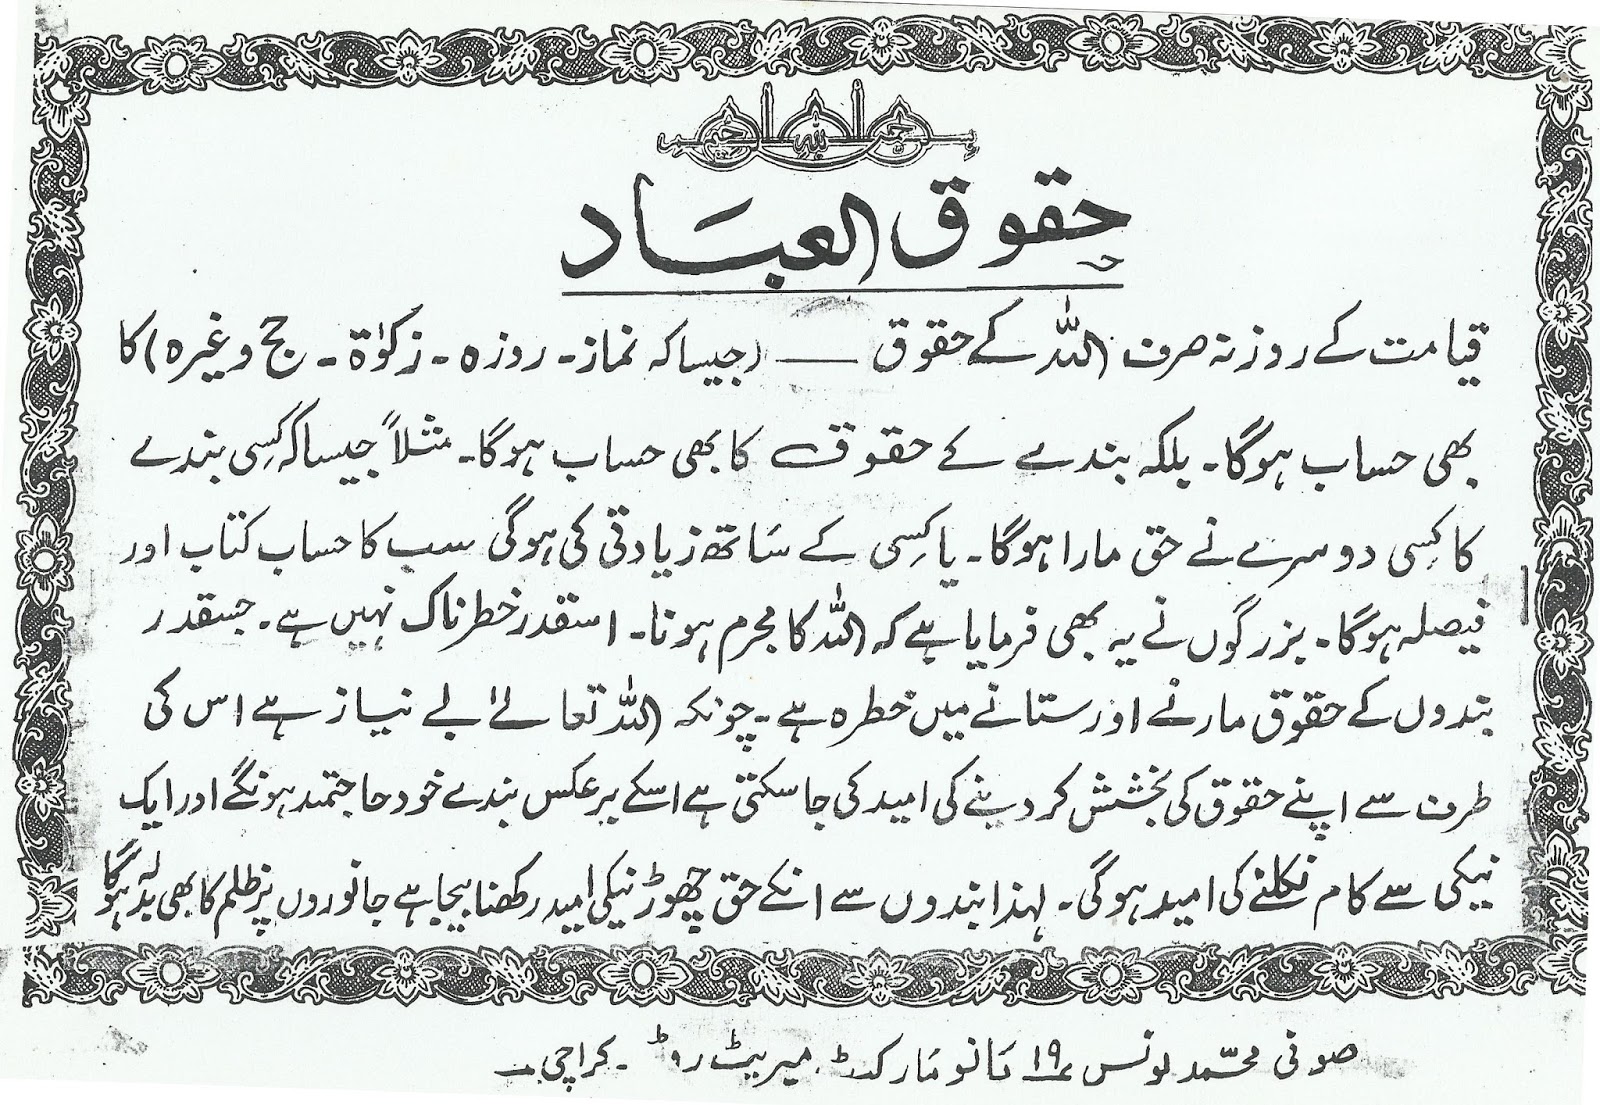 بسم الله الرحمن الرحيم
حقوق العباد
قیامت کے روز نہ صرف اللہ کے حقوق ــــ (جیسا کہ نماز۔ روزہ۔ زکوٰۃ۔ حج وغیرہ) کا
بھی حساب ہوگا۔ بلکہ بندے کے حقوق کا بھی حساب ہوگا۔ مثلاً جیسا کہ کِسی بندے
کا کِسی دوسرے نے حق مارا ہوگا۔ یا کِسی کے سَاتھ زیادتی کی ہوگی سب کا حساب کتاب اور
فیصلہ ہوگا۔ بزرگوں نے یہ بھی فرمایا ہے کہ اللہ کا مجرم ہونا۔ اسقدر خطرناک نہیں ہے۔ جسقدر
بندوں کے حقوق مارنے اور ستانے میں خطرہ ہے۔ چونکہ اللہ تعالےٰ بے نیاز ہے اس کی
طرف سے اپنے حقوق کی بخشش کر دینے کی امید کی جا سکتی ہے اسکے برعکس بندے خود حاجتمند ہونگے اور ایک
نیکی سے کام نکلنے کی امید ہوگی۔ لہذا بندوں سے انکے حق چھوڑ نیکی امید رکھنا بیجا ہے جانوروں پر ظلم کا بھی بدلہ ہوگا
صوفی محمّد یونس ۱۹ مَارکٹ میریٹ روڈ۔ کراچی